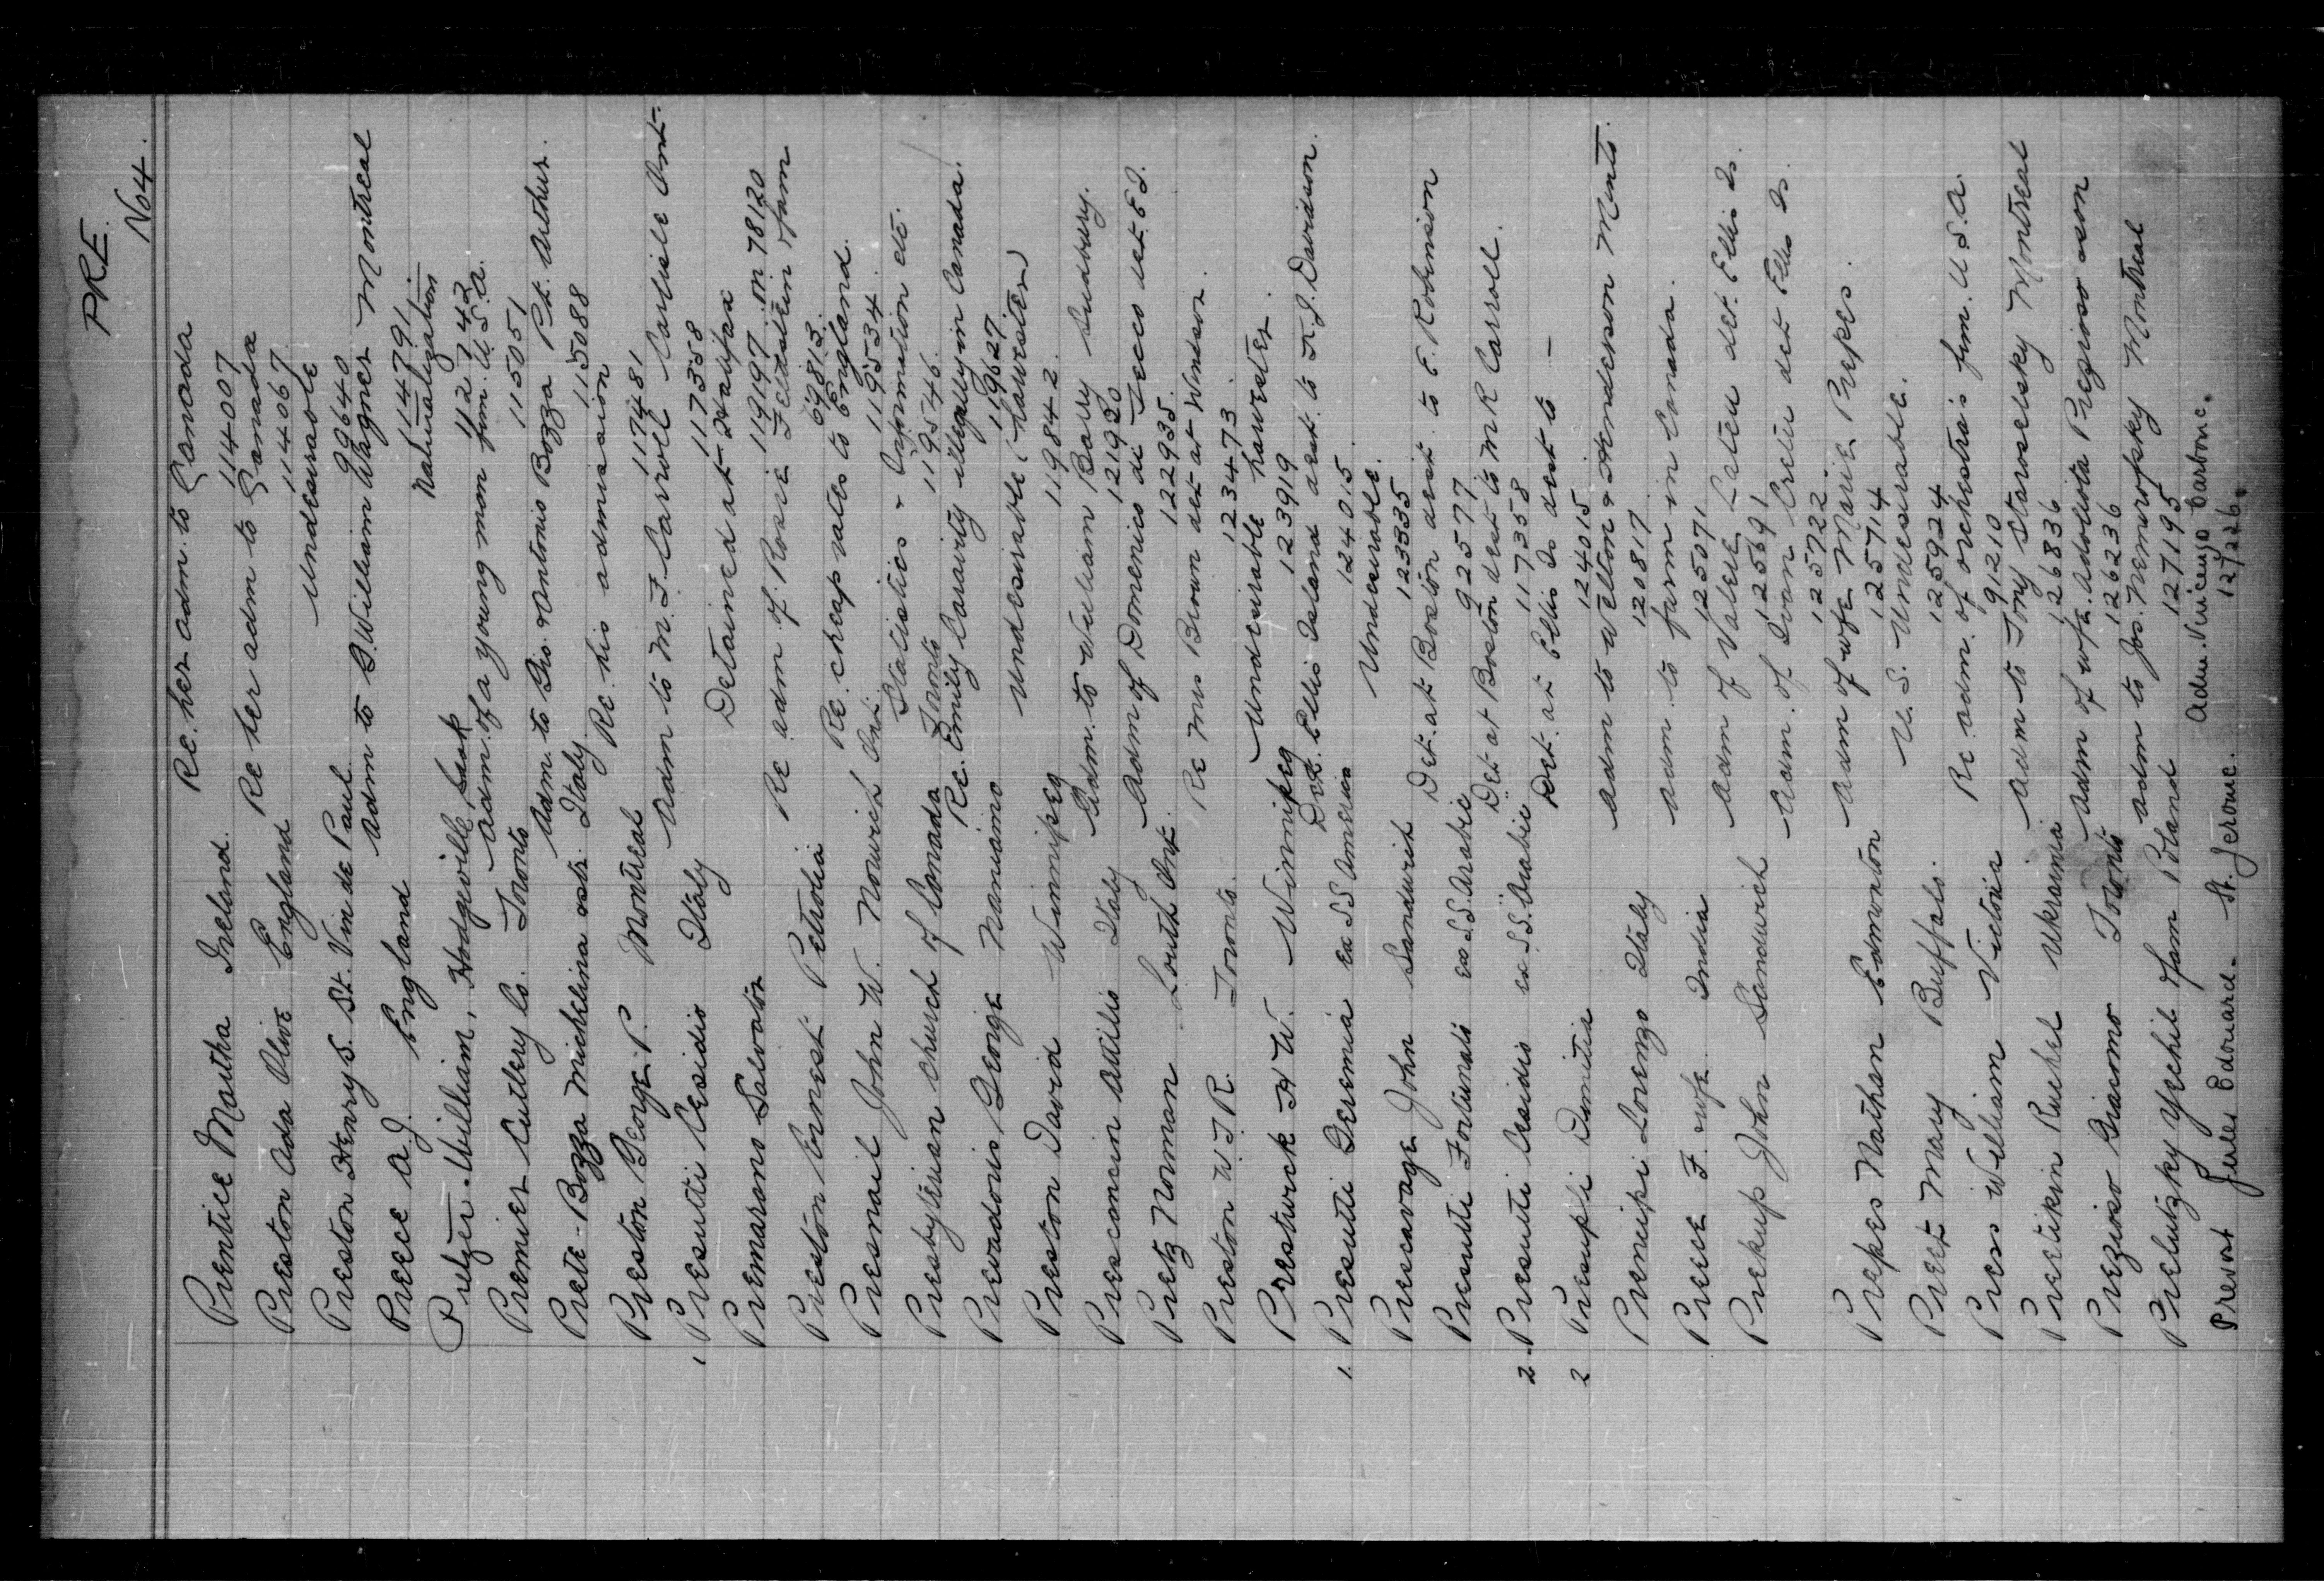 PRE.
No 4.
Prentice Martha Ireland. Re. her adm. to Canada
114007
Preston Ada Olive England Re her adm to Canada
114067
Preston Henry S. St. Vin de Paul. Undesirable
99640
Preece A. J. England Adm to G. William Wagner Montreal
114791
Naturalization
Prelzer William, Hodgeville Sask
112742
Adm. of a young man fm. U.S.A.
Premier Cutlery Co. Toronto
115051
Adm. to Gio. & Antonio Bozza Pt. Arthur.
Prete-Bozza Michelina Italy.
115088
Re. his admission
Preston George P. Montreal
117481
Adm to M. F. Carroll Carlisle Ont.
1. Presutti Cesidio Italy
117358
Detained at Halifax
Premarano Salvator
119197 m 78120
Re adm. of Rosie Feldstein fam
Preston Ernest Petrolia
69813.
Re. cheap rates to England.
Presnail John W. Norwich Ont.
119534
Statistics & information etc.
Presbyterian Church of Canada Toronto
119546.
Re. Emily Cavarity illegally in Canada.
Prevadoris George Nanaimo
119627.
Undesirable (harvester)
Preston David Winnipeg
119842.
Adm. to William Barry Sudbury.
Presconcin Attilio Italy
121920
Adm of Domenico di Tecco det E I.
Pretz Norman Louth Ont.
122935.
Re Mrs Brown det at Windsor.
Preston W. J R. Toronto.
123473.
Undesirable harvester.
Presturick H W. Winnipeg
123919
Det. Ellis Island dest. to F. J. Davidson.
1. Presutti Geremia ex SS America
124015.
Undesirable.
Prescavage John Sandwich
123335
Det. at Boston dest. to E. Robinson
Presutti Fortunato ex S.S. Arabic
92577
Det at Boston dest to M R Carroll.
2. Presutti Cesidio ex S.S. Arabic
117358
Det. at Ellis Is dest to —
2 Presuppi Dimitia
124015
Adm to Welton & Henderson Minto.
Premipi Lorenzo Italy
120817
Adm. to farm in Canada.
Preece F. wife. India
125071
Adm of Valere Lateu det. Ellis Is.
Prekup John Sandwich
125691
Adm. of Ivan Cretu det Ellis Is.
125722
Adm of wfe Marie Prepes.
Prepes Nathan Edmonton
125714
U. S. Undesirable.
Preet Mary Buffalo.
125924
Re adm. of orchestras fm. U S.A.
Press William Victoria
91210
Adm to Tony Staroselsky Montreal
Pretikin Ruchel Ukrainia
126836
Adm of wfe. Adolista Pregioso & son
Prezioso Giacomo Toronto
126236
Adm to Jos. Nemirofsky Montreal
Prelutzky Yechil fam Poland
127195
Adm. Vicenzo Carbone.
Prevost Jules Edouard – St. Jerome.
12/226.